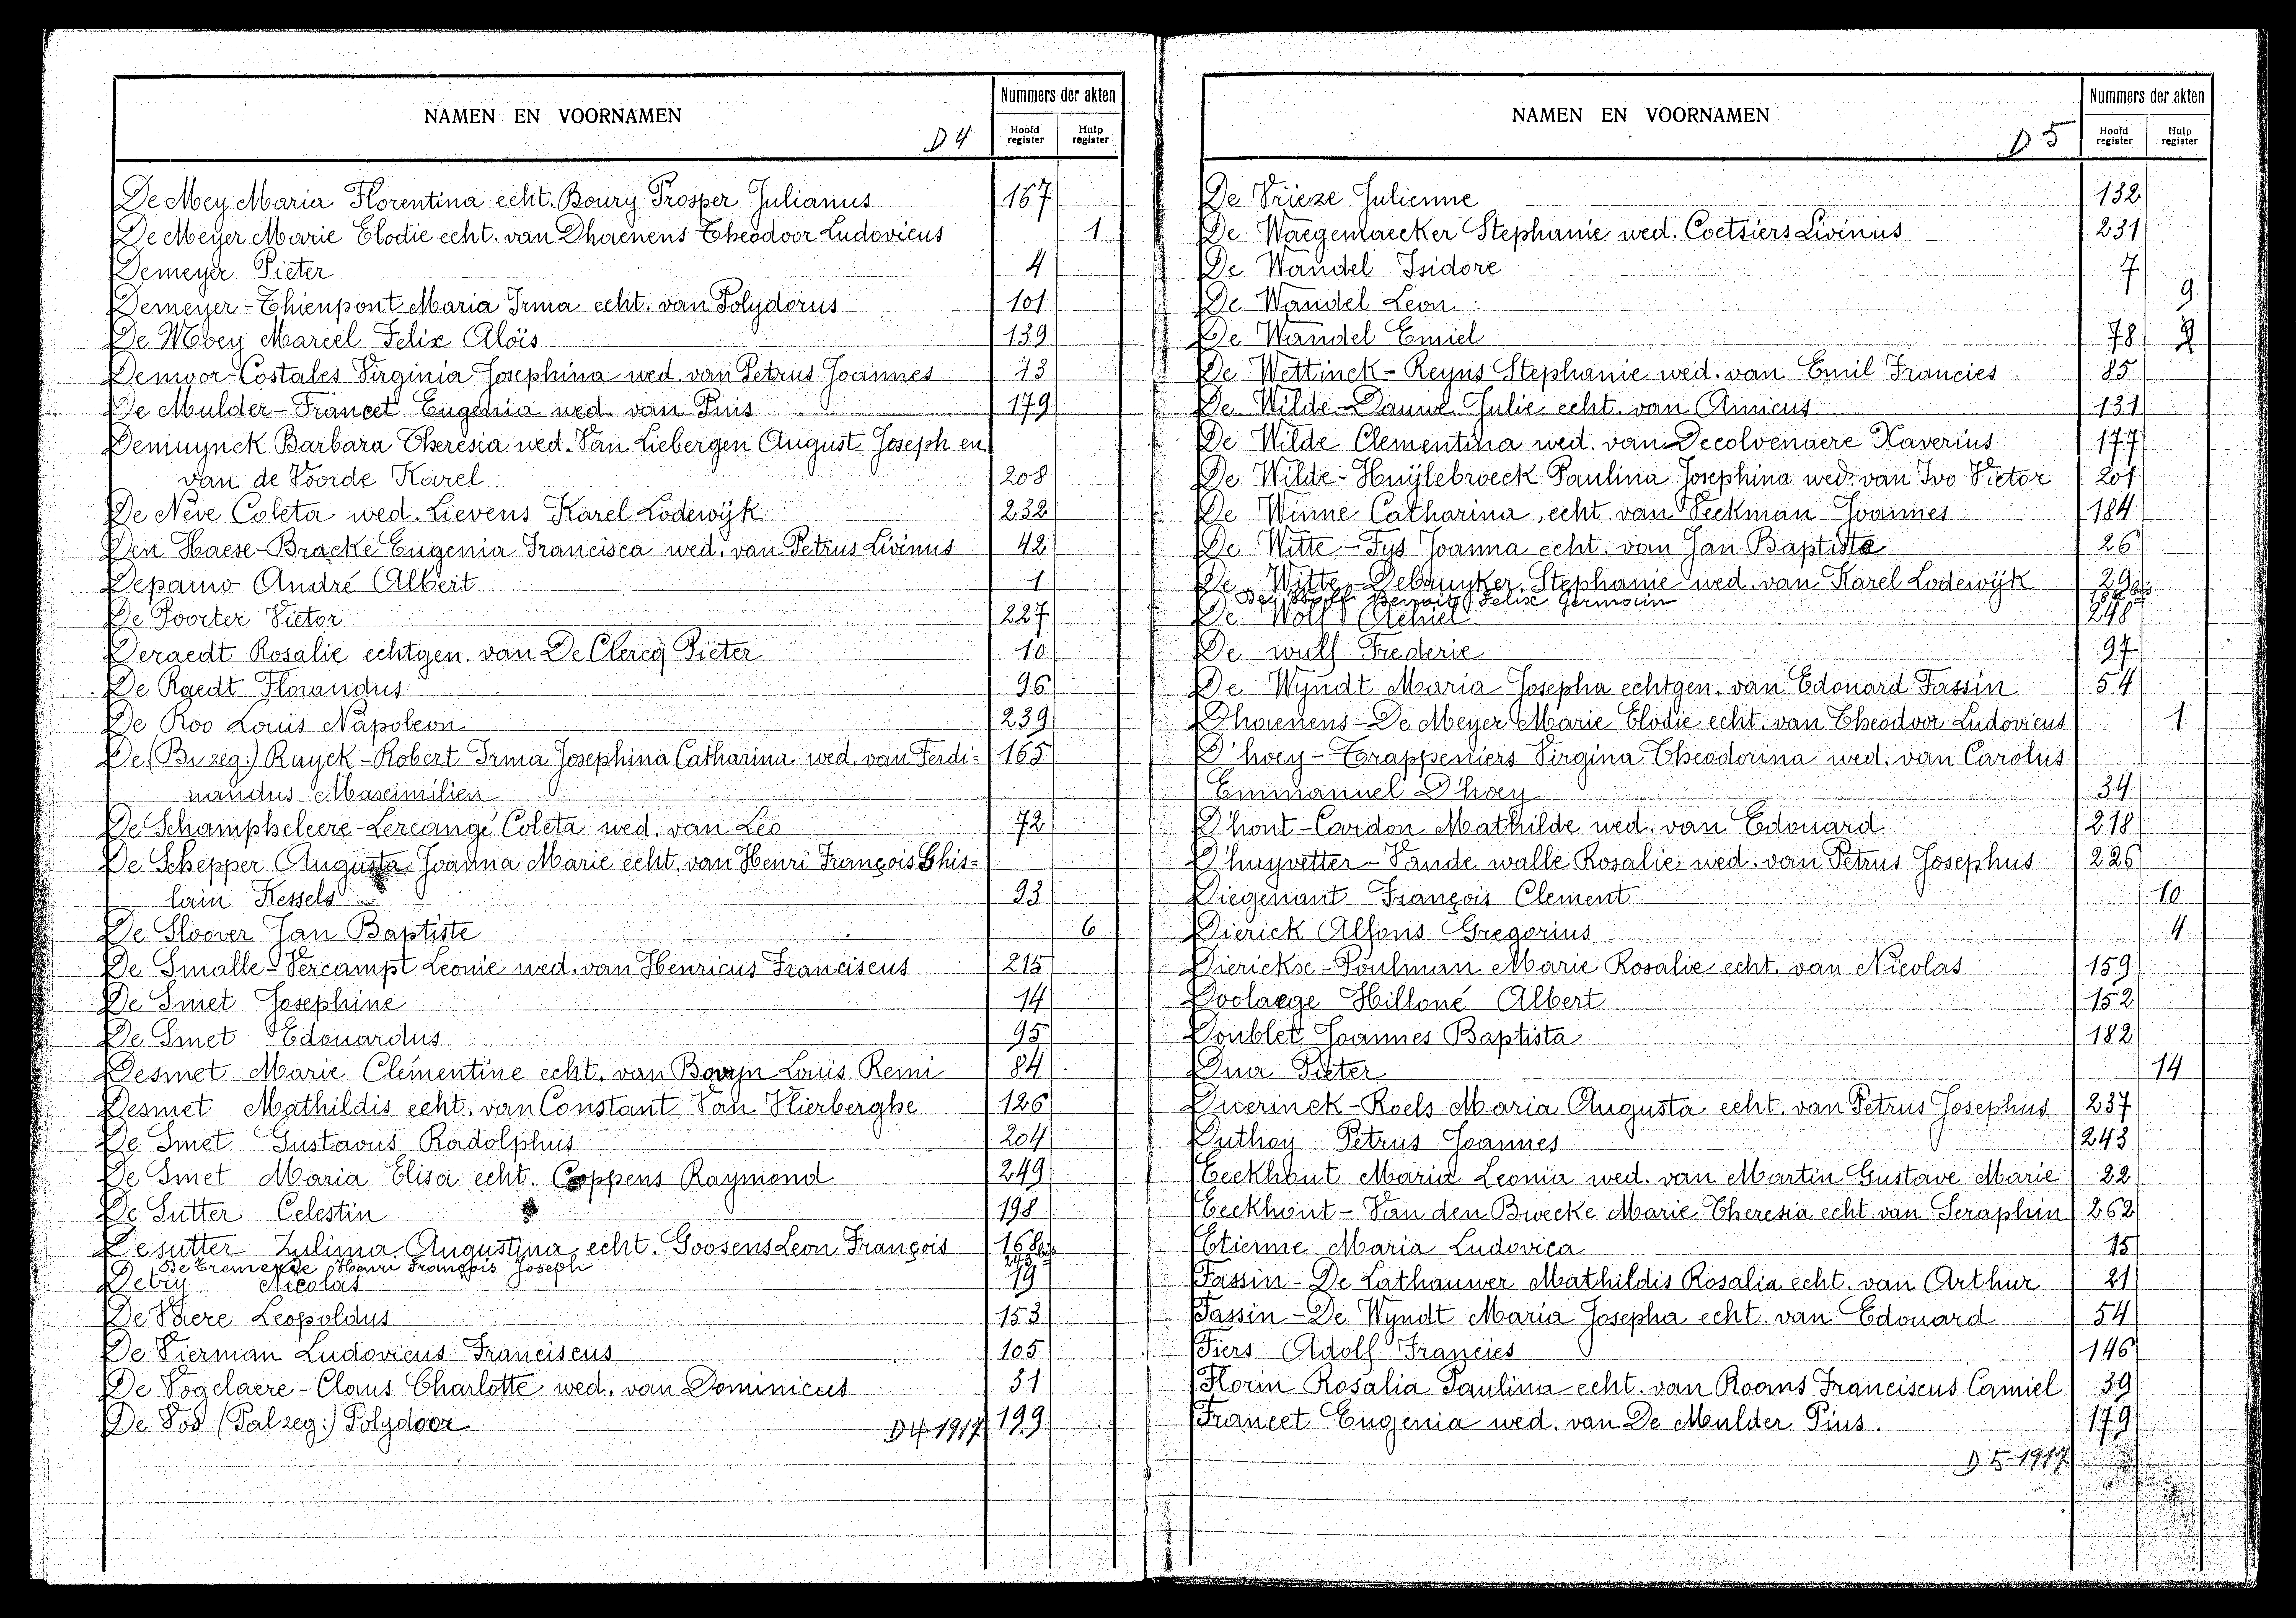 NAMEN EN VOORNAMEN
D 4
Nummers der akten
Hoofd register
Hulp register
De Mey Maria Florentina echt. Boury Prosper Julianus 167
De Meyer Marie Elodie echt. van Dhaenens Theodoor Ludovicus 1
Demeyer Pieter 4
Demeyer-Thienpont Maria Irma echt. van Polydorus 101
De Moey Marcel Felix Aloïs 139
Demoor-Costales Virginia Josephina wed. van Petrus Joannes 13
De Mulder-Francet Eugenia wed. van Puis 179
Demuynck Barbara Theresia wed. Van Liebergen August Joseph en
van de Voorde Karel 208
De Neve Coleta wed. Lievens Karel Lodewijk 232
Den Haese-Bracke Eugenia Francisca wed. van Petrus Livinus 42
Depauw André Albert 1
De Poorter Victor 227
Deraedt Rosalie echtgen. van De Clercq Pieter 10
De Raedt Florandus 96
De Roo Louis Napoleon 239
De (Bi zeg:) Ruyck-Robert Irma Josephina Catharina wed. van Ferdi= 165
nandus Maximilien
De Schampheleere-Lercangé Coleta wed. van Leo 72
De Schepper Augusta Joanna Marie echt. van Henri François Ghis=
lain Kessels 93
De Sloover Jan Baptiste 6
De Smalle-Vercampt Leonie wed. van Henricus Franciscus 215
De Smet Josephine 14
De Smet Edouardus 95
Desmet Marie Clementine echt. van Louis Remi 84
Desmet Mathildis echt. van Constant Van Hierberghe 126
De Smet Gustavus Radolphus 204
De Smet Maria Elisa echt. Coppens Raymond 249
De Sutter Celestin 198
Desutter Zulima Augustina echt. Goosens Leon François 168bis
De Bremerde Henri François Joseph 243
Detry Nicolas 19
De Vaere Leopoldus 153
De Vierman Ludovicus Franciscus 105
De Vogelaere-Claus Charlotte wed. van Dominicus 31
De Vos (Pal zeg:) Polydoor 199
D 4 1917
NAMEN EN VOORNAMEN
D 5
Nummers der akten
Hoofd register
Hulp register
De Vrieze Julienne 132
De Waegemaecker Stephanie wed. Coetsiers Livinus 231
De Wandel Isidore 7
De Wandel Leon 9
De Wandel Emiel 78
De Wettinck-Reyns Stephanie wed. van Emil Francies 85
De Wilde-Dauwe Julie echt. van Amicus 131
De Wilde Clementina wed. van Decolvenaere Xaverius 177
De Wilde-Huÿlebroeck Paulina Josephina wed. van Ivo Victor 201
De Winne Catharina echt. van Veckman Joannes 184
De Witte-Fys Joanna echt. van Jan Baptista 26
De Witte-Debruyker Stephanie wed. van Karel Lodewijk 29
De Wolf Benoit Felix Germain
De Wolf Achiel 248
De wulf Frederic 97
De Wyndt Maria Josepha echtgen. van Edouard Fassin 54
Dhaenens-De Meyer Marie Elodie echt. van Theodoor Ludovicus 1
D'hoey-Trappeniers Virgina Theodorina wed. van Carolus
Emmanuel D'hoey 34
D'hont-Cardon Mathilde wed. van Edouard 218
D'huyvetter-Vande walle Rosalie wed. van Petrus Josephus 226
Diegenant François Clement 10
Dierick Alfons Gregorius 4
Dierickx-Poulman Marie Rosalie echt. van Nicolas 159
Doolaege Hilloné Albert 152
Doublet Joannes Baptista 182
Dua Pieter 14
Duerinck-Roels Maria Augusta echt. van Petrus Josephus 237
Duthoy Petrus Joannes 243
Eeckhout Maria Leonia wed. van Martin Gustave Marie 22
Eeckhout-Van den Bwecke Marie Theresia echt. van Seraphin 262
Etienne Maria Ludovica 15
Fassin-De Lathauwer Mathildis Rosalia echt. van Arthur 21
Fassin-De Wyndt Maria Josepha echt. van Edouard 54
Fiers Adolf Francies 146
Florin Rosalia Paulina echt. van Rooms Franciscus Camiel 39
Francet Eugenia wed. van De Mulder Pius. 179
D 5-1917